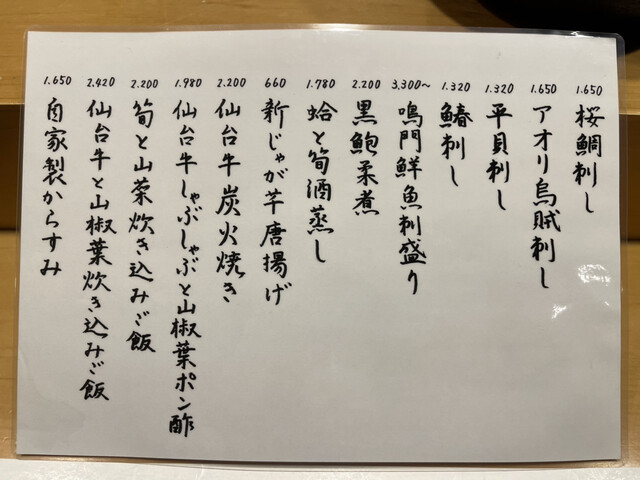 1.650 桜鯛刺し
1.650 アオリ烏賊刺し
1.320 平貝刺し
1.320 鰆刺し
3,300〜 鳴門鮮魚刺盛り
2.200 黒鮑柔煮
1.780 蛤と筍酒蒸し
660 新じゃが芋唐揚げ
2.200 仙台牛炭火焼き
1.980 仙台牛しゃぶしゃぶと山椒葉ポン酢
2.200 筍と山菜炊き込みご飯
2.420 仙台牛と山椒葉炊き込みご飯
1.650 自家製からすみ